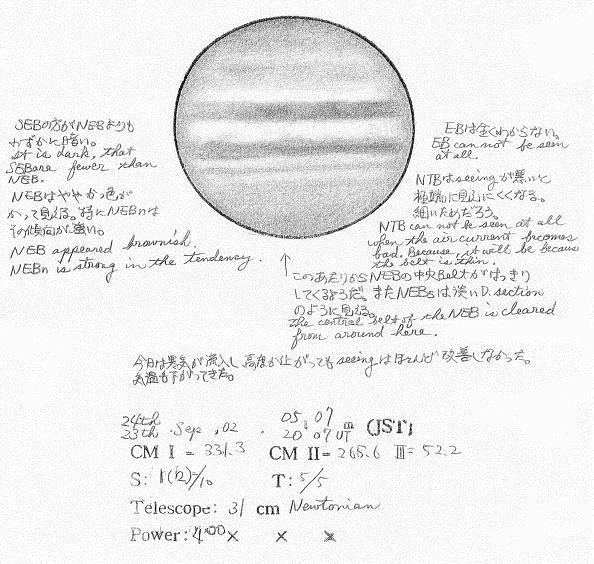 SEBの方がNEBよりも
わずかに暗い。
It is dark, that
SEB are fewer than
NEB.
NEBはややかっ色が
かって見える。特にNEBnは
その傾向が強い。
NEB appeared brownish.
NEBn is strong in the tendency.
EBは全くわからない。
EB can not be seen
at all.
NTBはseeingが悪いと
極端に見えにくくなる。
細いためだろう。
NTB can not be seen at all
when the air current becomes
bad. Because, it will be because
the belt is thin.
↑
このあたりからNEBの中央Beltがはっきり
してくるようだ。またNEBsは淡いD.section
のように見える。
the central belt of the NEB is cleared
from around here.
今日は寒気が流入し、高度が上がってもseeingはほとんど改善しなかった。
気温も下がってきた。
24th 05:07
23th . Sep , 02 . 20 m 07 UT (JST)
CM I = 331.3 CM II = 265.6 III = 52.2
S: 1(2)/10 T: 5/5
Telescope: 31 cm Newtonian
Power: 400× × ×